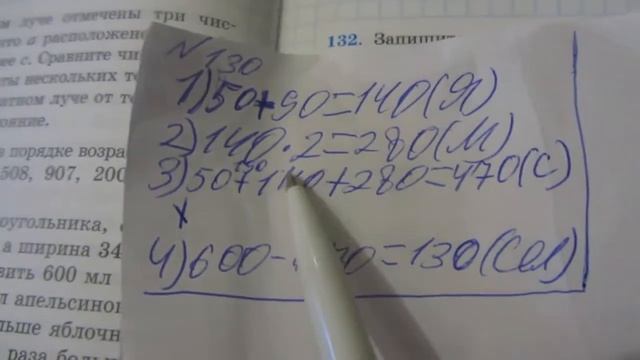 ом луче отмечены три чис-
что a расположено
ее c. Сравните чи
ты нескольких то
атном луче от то
ояние.
в порядке возра
508, 907, 200
оугольника,
а ширина 34
вить 600 мл
л апельсинов
льше яблочн
раза больше
132. Запишит
№ 130
1) 50+90=140(Я)
2) 140·2=280(М)
3) 50+140+280=470(С)
4) 600-470=130(Сол)